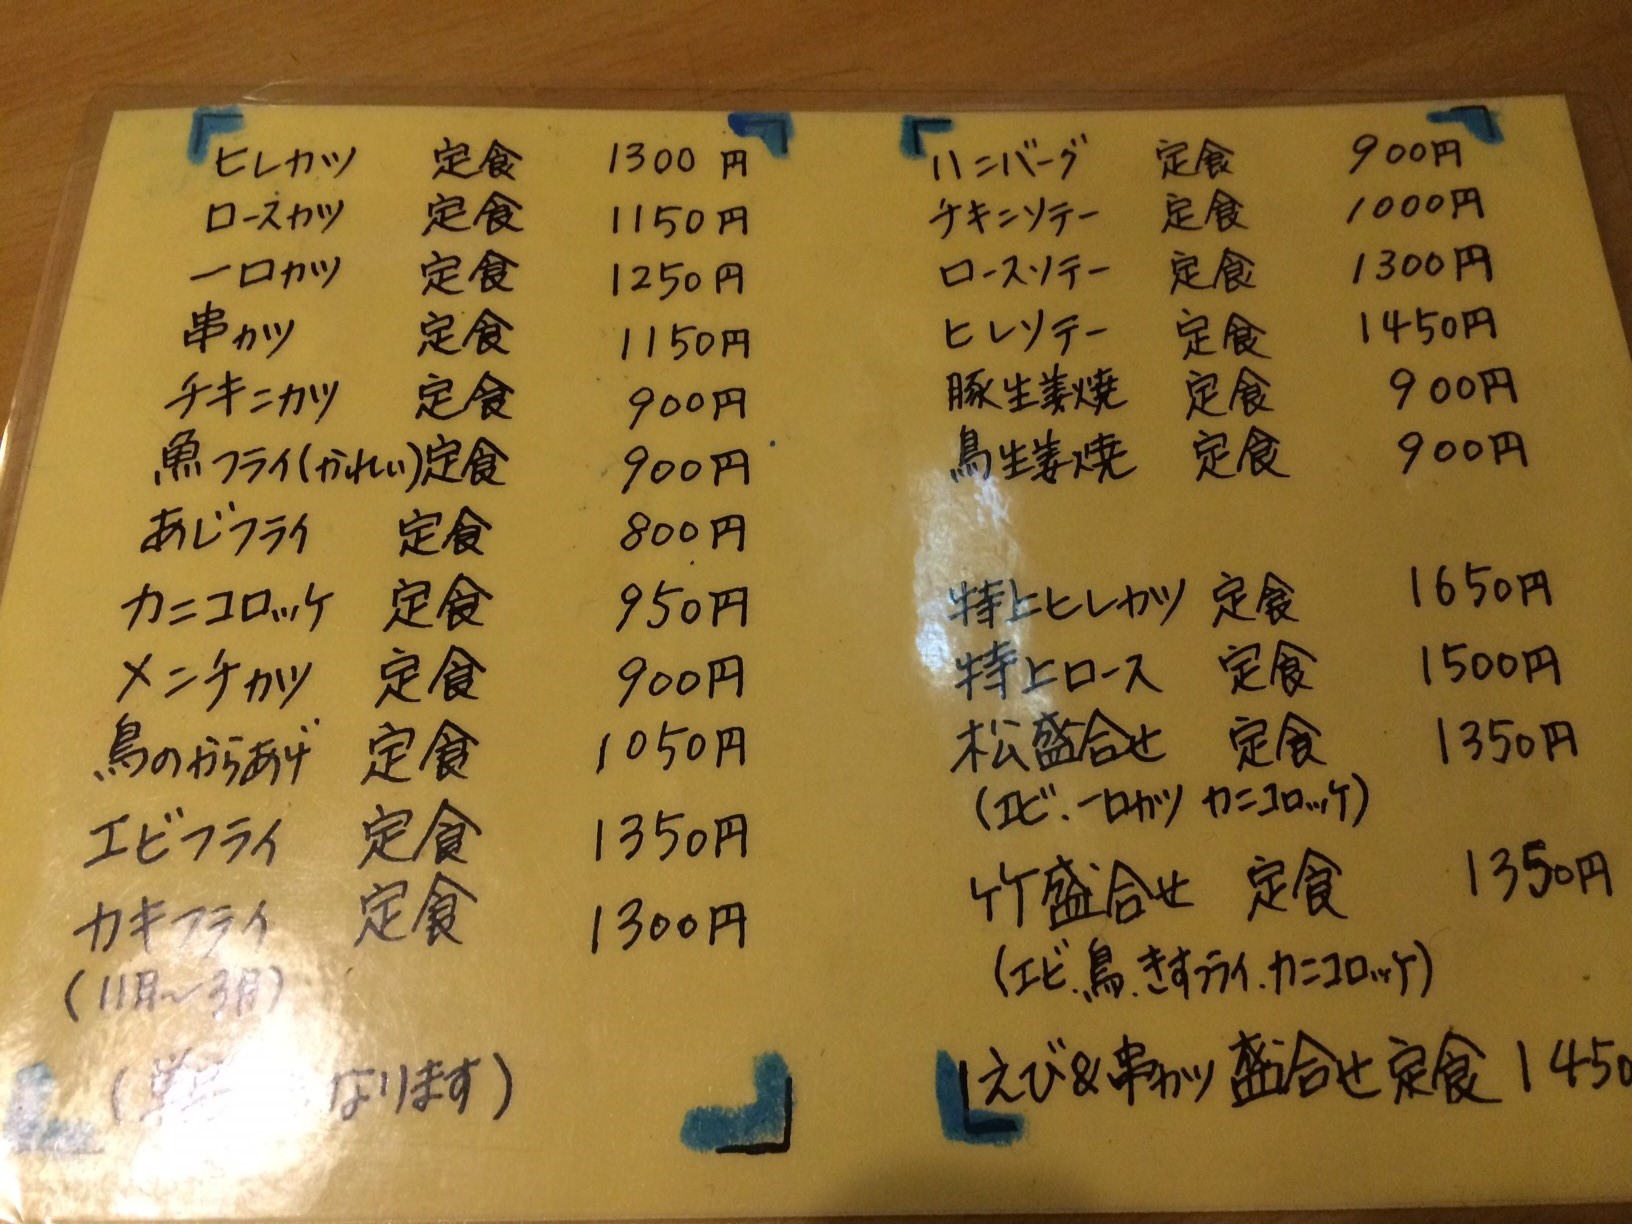 ヒレカツ 定食 1300円
ロースカツ 定食 1150円
一口カツ 定食 1250円
串カツ 定食 1150円
チキンカツ 定食 900円
魚フライ(かれい)定食 900円
あじフライ 定食 800円
カニコロッケ 定食 950円
メンチカツ 定食 900円
鳥のからあげ 定食 1050円
エビフライ 定食 1350円
カキフライ 定食 1300円
(11月~3月)
なります)
ハンバーグ 定食 900円
チキンソテー 定食 1000円
ロースソテー 定食 1300円
ヒレソテー 定食 1450円
豚生姜焼 定食 900円
鳥生姜焼 定食 900円
特上ヒレカツ 定食 1650円
特上ロース 定食 1500円
松盛合せ 定食 1350円
(エビ.一口カツ カニコロッケ)
竹盛合せ 定食 1350円
(エビ.鳥.きすフライ.カニコロッケ)
えび&串カツ 盛合せ定食 1450